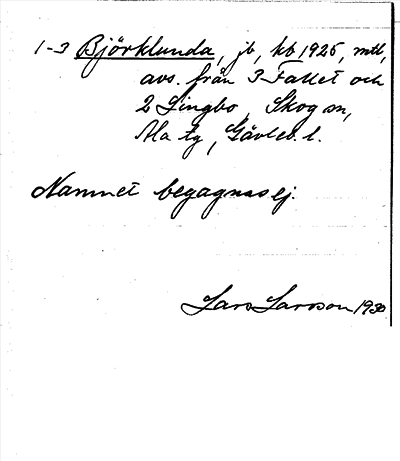 1-3 Björklunda, jb, kb 1925, mtl,
avs. från 3 Fallet och
2 Lingbo, Skog sn,
Ala tg, Gävleb. l.
Namnet begagnas ej.
Lars Larsson 1930